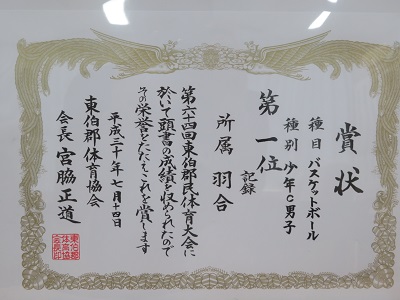 賞状
種目 バスケットボール
種別 少年C男子
第一位
記録
所属 羽合
第六十四回東伯郡民体育大会に
於いて頭書の成績を収められたので
その栄誉をたたえこれを賞します
平成三十年七月十四日
東伯郡体育協会
会長 宮脇正道
東伯郡
体育協
会長印